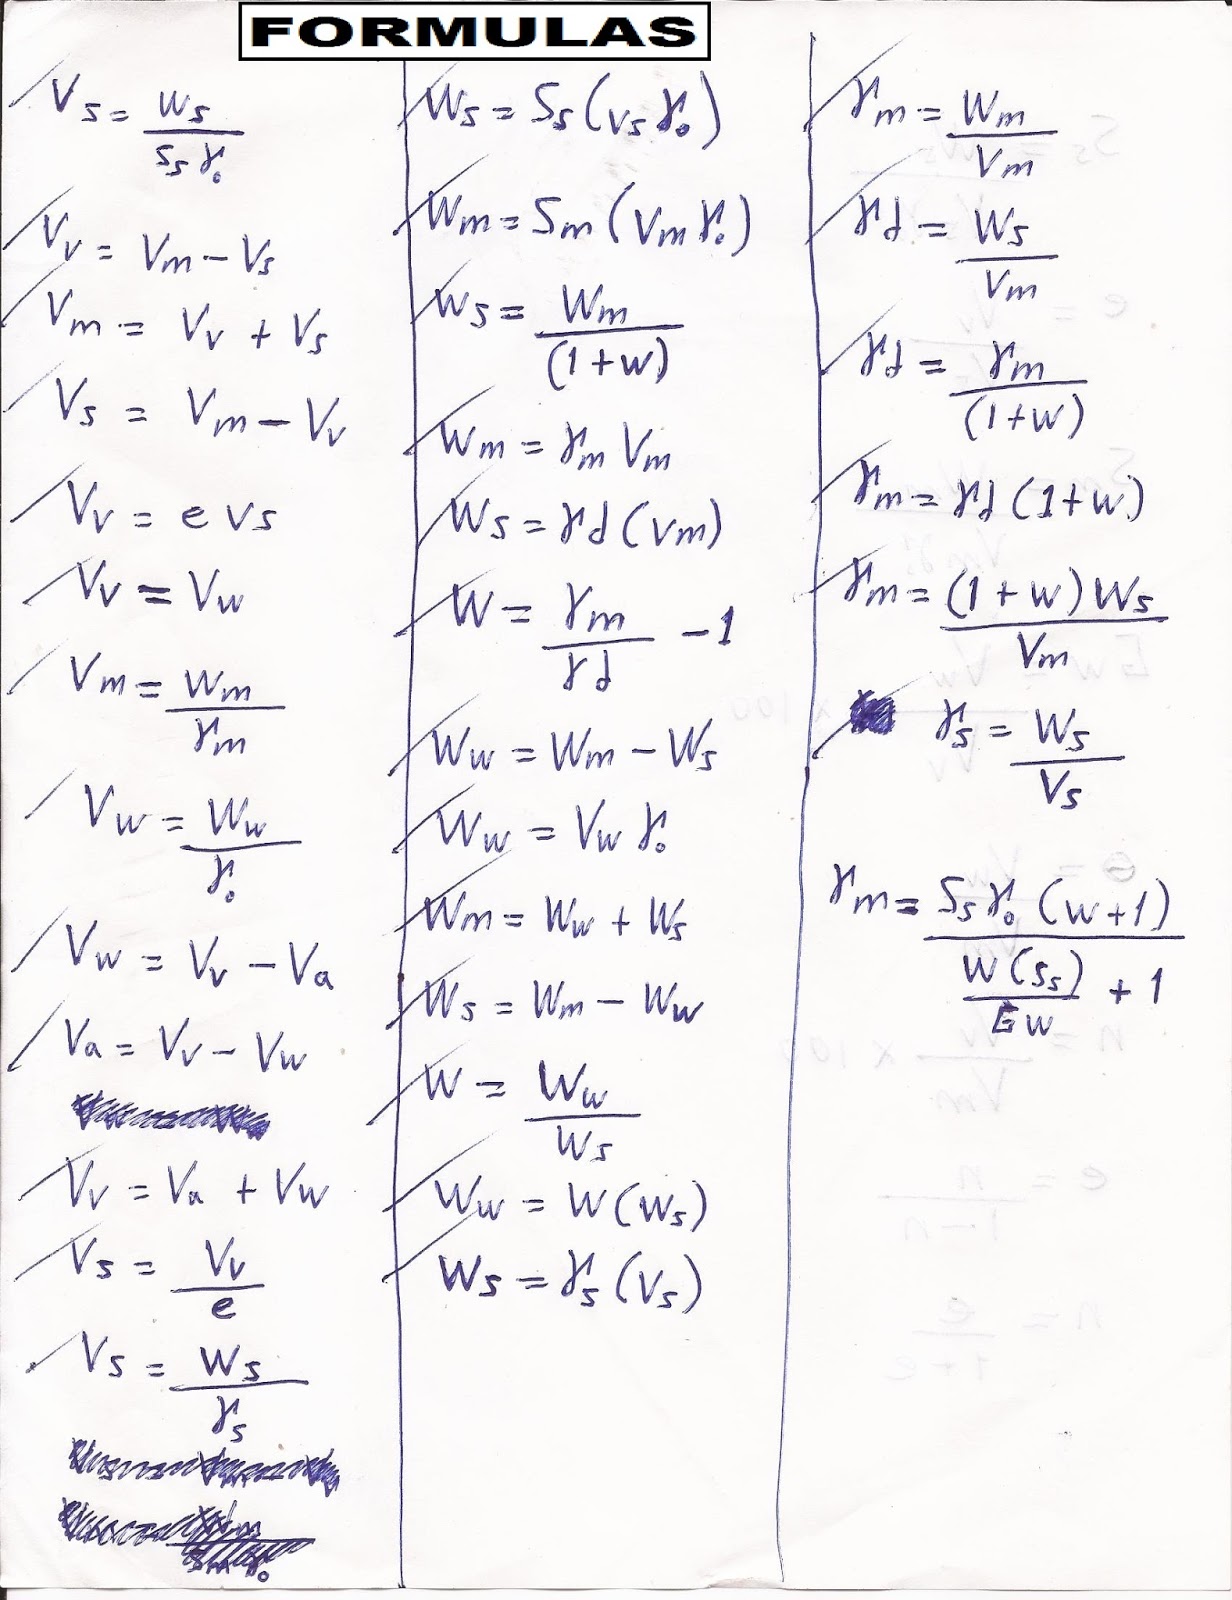 FORMULAS
Vs = Ws / Ss γo
Vv = Vm - Vs
Vm = Vv + Vs
Vs = Vm - Vv
Vv = e Vs
Vv = Vw
Vm = Wm / γm
Vw = Ww / γo
Vw = Vv - Va
Va = Vv - Vw
Vv = Va + Vw
Vs = Vv / e
Vs = Ws / γs
Ws = Ss (Vs γo)
Wm = Sm (Vm γo)
Ws = Wm / (1+w)
Wm = γm Vm
Ws = γd (Vm)
W = γm / γd - 1
Ww = Wm - Ws
Ww = Vw γo
Wm = Ww + Ws
Ws = Wm - Ww
W = Ww / Ws
Ww = W (Ws)
Ws = γs (Vs)
γm = Wm / Vm
γd = Ws / Vm
γd = γm / (1+w)
γm = γd (1+w)
γm = (1+w) Ws / Vm
γs = Ws / Vs
γm = Ss γo (w+1) / W(Ss) / Gw + 1